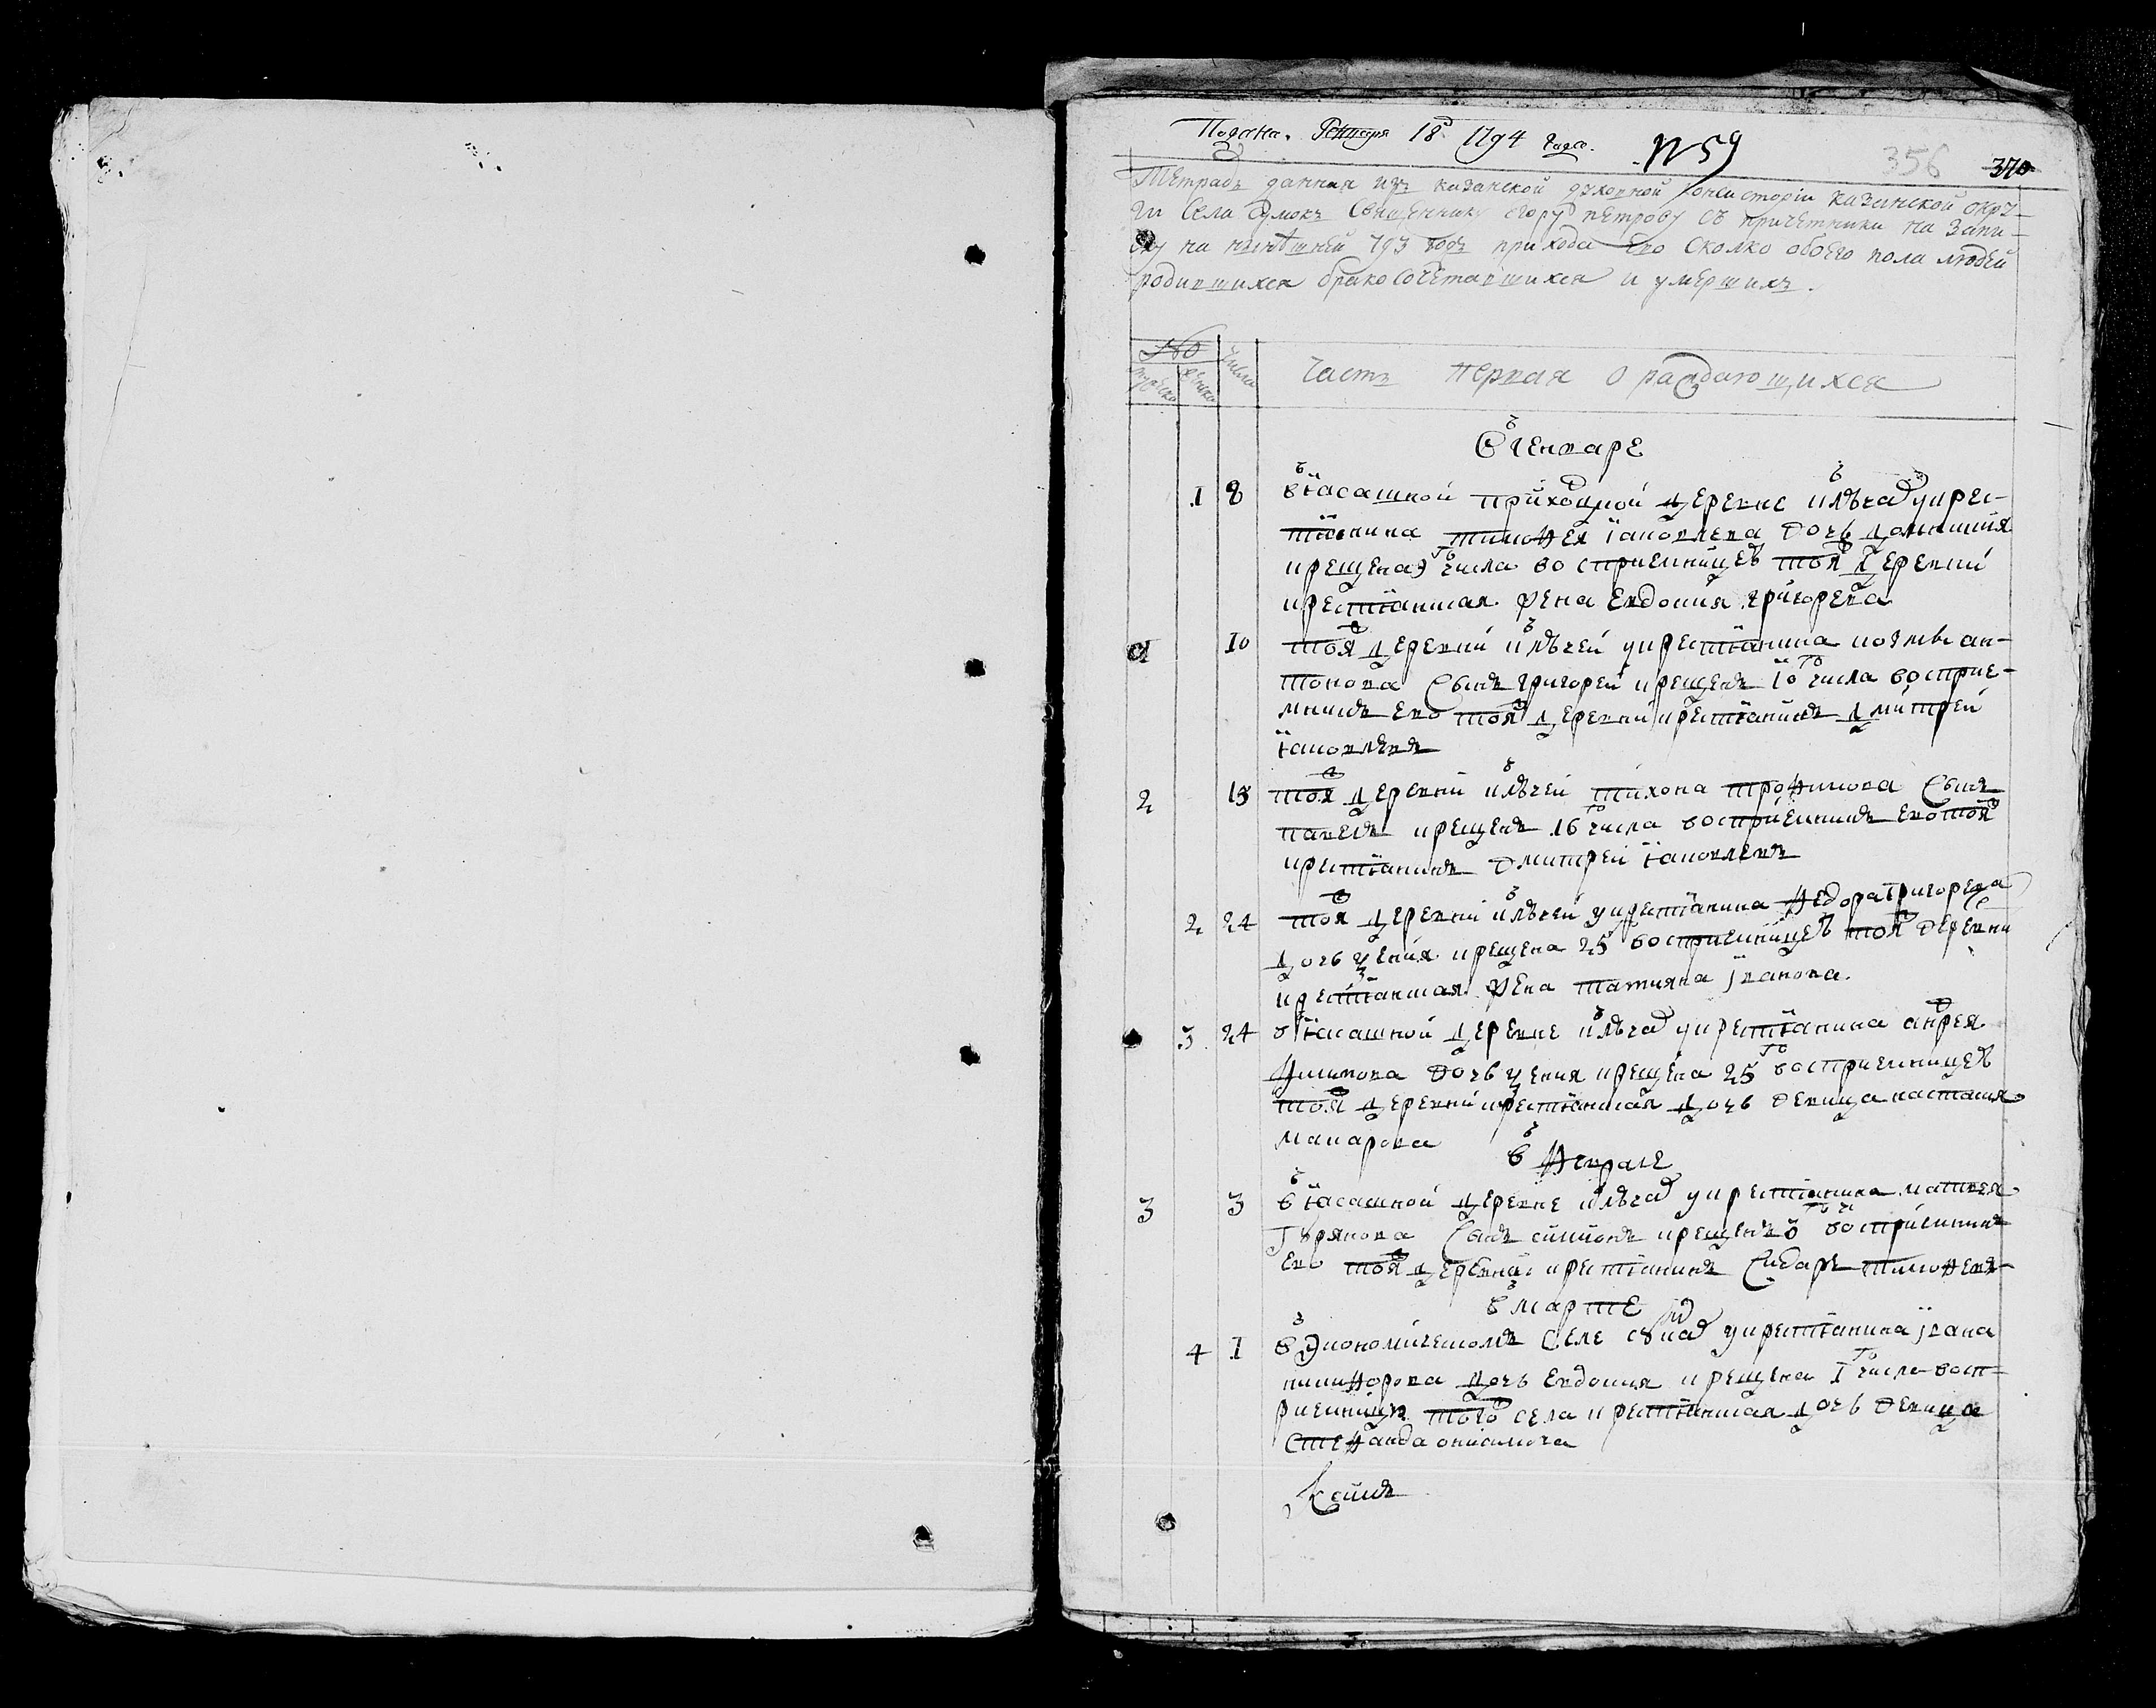 Подана. Генваря 18 д 1794 года.
№ 59
356 370
Тетрадь данная изъ казанской духовной консисторіи казанской окру-
ги села священнику егору петрову съ причетники на запи-
ску на нынѣшней 793 годъ прихода ево сколко обоего пола людей
родившихся бракосочетавшихся и умершихъ.
№ числа
мужеска женска
часть первая о раждающихся
въ генваре
1 8 въ ясашной приходной деревне у крес-
тьянина тимофея яковлева дочь
крещена 9 го числа восприемницей тояж деревни
крестьянская жена евдокия григорева
1 10 тояж деревни у крестьянина ан-
тонова сынъ григорей крещенъ 10 го числа восприе-
мникъ ево тояж деревни крестьянинъ дмитрей
яковлевъ
2 15 тояж деревни тихона трофимова сынъ
павелъ крещенъ 16 го числа восприемникъ ево тояж
крестьянинъ дмитрей яковлевъ
2 24 тояж деревни у крестьянина федора григорева
дочь ксения крещена 25 восприемницей тояж деревни
крестьянская жена татияна іванова.
3 24 въ ясашной деревне у крестьянина андрея
дочь ксения крещена 25 го восприемницей
тояж деревни крестьянская дочь девица настасия
макарова
въ феврале
3 3 въ ясашной деревне у крестьянина матвея
сынъ крещенъ восприемникъ
ево тояж деревни крестьянинъ сидаръ тимофеевъ
въ марте
4 1 въ экономическомъ селе у крестьянина івана
никифорова дочь евдокия крещена 1 го числа восп-
риемница тогож села крестьянская дочь девица
стефанида